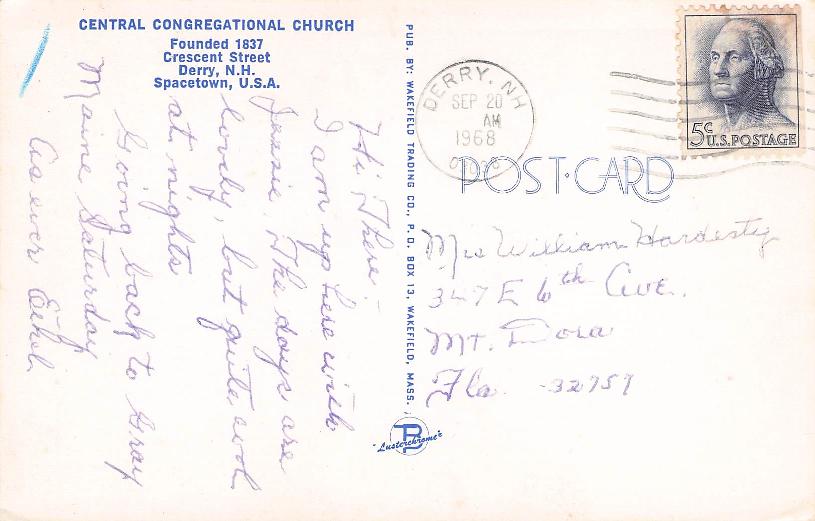 CENTRAL CONGREGATIONAL CHURCH
Founded 1837
Crescent Street
Derry, N.H.
Spacetown, U.S.A.
Hi There:
I am up here with
Jessie. The days are
lovely, but quite cool
at nights
Going back to Gray
Maine Saturday
As ever Ethel
PUB. BY: WAKEFIELD TRADING CO., P. O. BOX 13, WAKEFIELD, MASS.
"Lusterchrome"
DERRY, NH
SEP 20
AM
1968
5c U.S. POSTAGE
POST-CARD
Mrs William Hardesty
347 E 6th Ave.
Mt. Dora
Fla. 32757